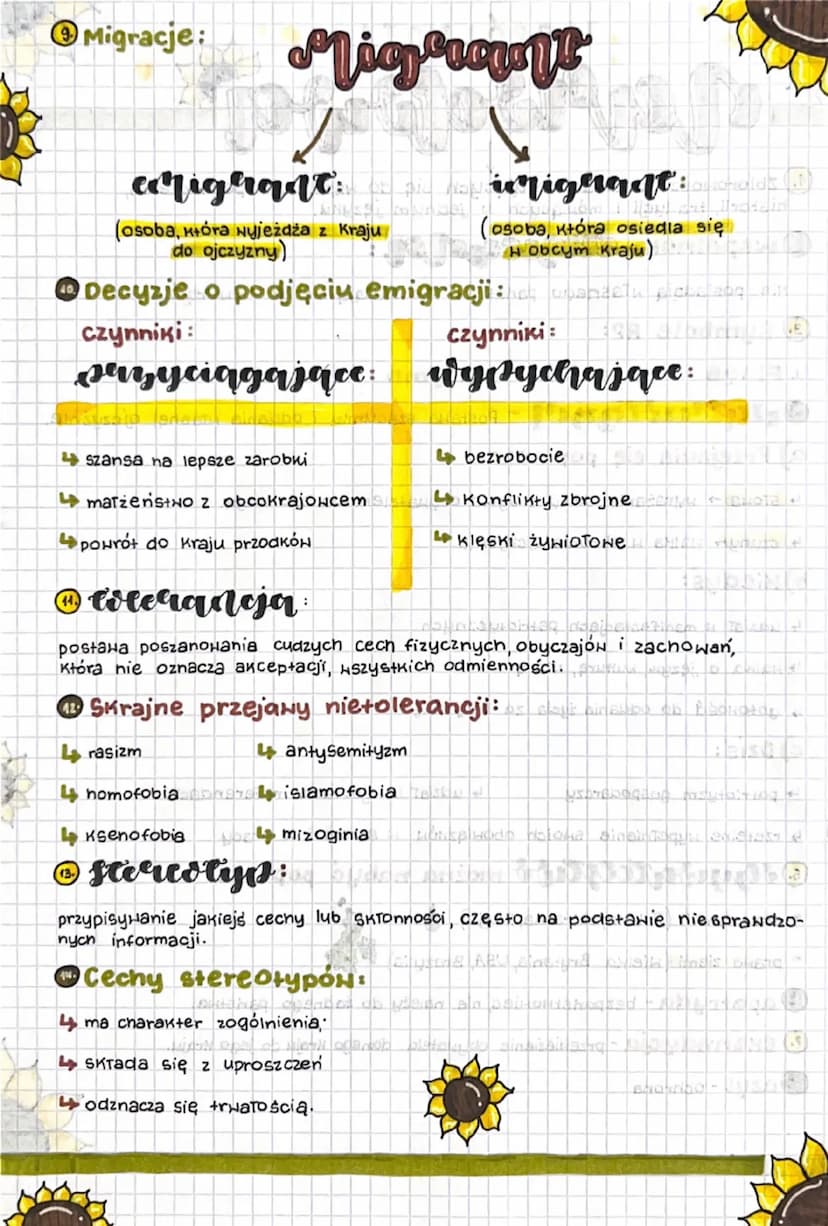 9. Migracje:
migrant
emigrant:
imigrant:
(osoba, która wyjeżdża z kraju
do ojczyzny)
(osoba, która osiedla się
w obcym kraju)
10. Decyzje o podjęciu emigracji:
czynniki:
czynniki:
przyciągające:
wypychające:
↳ szansa na lepsze zarobki
↳ bezrobocie
↳ małżeństwo z obcokrajowcem
↳ konflikty zbrojne
↳ powrót do kraju przodków
↳ klęski żywiołowe
11. tolerancja:
postawa poszanowania cudzych cech fizycznych, obyczajów i zachowań,
która nie oznacza akceptacji, wszystkich odmienności.
12. Skrajne przejawy nietolerancji:
↳ rasizm
↳ antysemityzm
↳ homofobia
↳ islamofobia
↳ ksenofobia
↳ mizoginia
13. stereotyp:
przypisywanie jakiejś cechy lub skłonności, często na podstawie niesprawdzo-
nych informacji.
14. Cechy stereotypów:
↳ ma charakter zogólnienia,
↳ składa się z uproszczeń
↳ odznacza się trwałością.